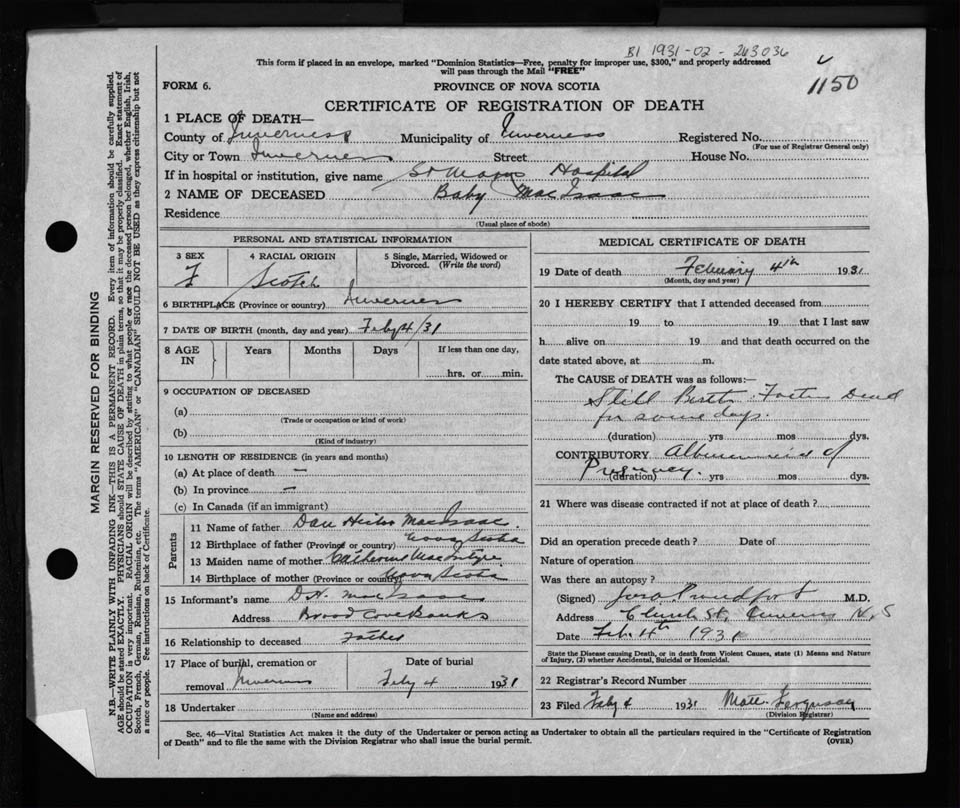 B1 1931-02-263036
This form if placed in an envelope, marked "Dominion Statistics—Free, penalty for improper use, $300," and properly addressed
will pass through the Mail "FREE"
1150
FORM 6.
PROVINCE OF NOVA SCOTIA
CERTIFICATE OF REGISTRATION OF DEATH
1 PLACE OF DEATH—
County of Inverness Municipality of Inverness Registered No.
(For use of Registrar General only)
City or Town Inverness Street House No.
If in hospital or institution, give name St Marys Hospital
2 NAME OF DECEASED Baby MacIsaac
Residence
(Usual place of abode)
PERSONAL AND STATISTICAL INFORMATION
3 SEX
F
4 RACIAL ORIGIN
Scotch
5 Single, Married, Widowed or
Divorced. (Write the word)
6 BIRTHPLACE (Province or country) Inverness
7 DATE OF BIRTH (month, day and year) Feby 4/31
8 AGE IN
Years Months Days If less than one day,
hrs. or min.
9 OCCUPATION OF DECEASED
(a)
(Trade or occupation or kind of work)
(b)
(Kind of industry)
10 LENGTH OF RESIDENCE (in years and months)
(a) At place of death —
(b) In province —
(c) In Canada (if an immigrant)
Parents
11 Name of father Dan Hector MacIsaac
12 Birthplace of father (Province or country) Nova Scotia
13 Maiden name of mother Catherine MacIntyre
14 Birthplace of mother (Province or country) Nova Scotia
15 Informant's name D.H. MacIsaac
Address Broad Cove Banks
16 Relationship to deceased Father
17 Place of burial, cremation or Date of burial
removal Inverness Feby 4 1931
18 Undertaker
(Name and address)
MEDICAL CERTIFICATE OF DEATH
19 Date of death February 4th 1931
(Month, day and year)
20 I HEREBY CERTIFY that I attended deceased from
19 to 19 that I last saw
h alive on 19 and that death occurred on the
date stated above, at m.
The CAUSE of DEATH was as follows:—
Still Birth. Foetus Dead
for some days.
(duration) yrs mos dys.
CONTRIBUTORY of
Pregnancy.
(duration) yrs mos dys.
21 Where was disease contracted if not at place of death?
Did an operation precede death? Date of
Nature of operation
Was there an autopsy?
(Signed) Proudfoot M.D.
Address Church St, Inverness N.S
Date Feb. 4th 1931
State the Disease causing Death, or in death from Violent Causes, state (1) Means and Nature
of Injury, (2) whether Accidental, Suicidal or Homicidal.
22 Registrar's Record Number
23 Filed Feby 4 1931 Matt. Ferguson
(Division Registrar)
Sec. 46—Vital Statistics Act makes it the duty of the Undertaker or person acting as Undertaker to obtain all the particulars required in the "Certificate of Registration
of Death" and to file the same with the Division Registrar who shall issue the burial permit. (OVER)
MARGIN RESERVED FOR BINDING
N.B.—WRITE PLAINLY WITH UNFADING INK—THIS IS A PERMANENT RECORD. Every item of information should be carefully supplied.
AGE should be stated EXACTLY. PHYSICIANS should STATE CAUSE OF DEATH in plain terms, so that it may be properly classified. Exact statement of
OCCUPATION is very important. RACIAL ORIGIN will be described by stating to what people or race the deceased person belonged, whether English, Irish,
Scotch, French, German, Russian, Ruthenian, etc. The terms "AMERICAN" or "CANADIAN" SHOULD NOT BE USED as they express citizenship but not
a race or people. Fee instructions on back of Certificate.